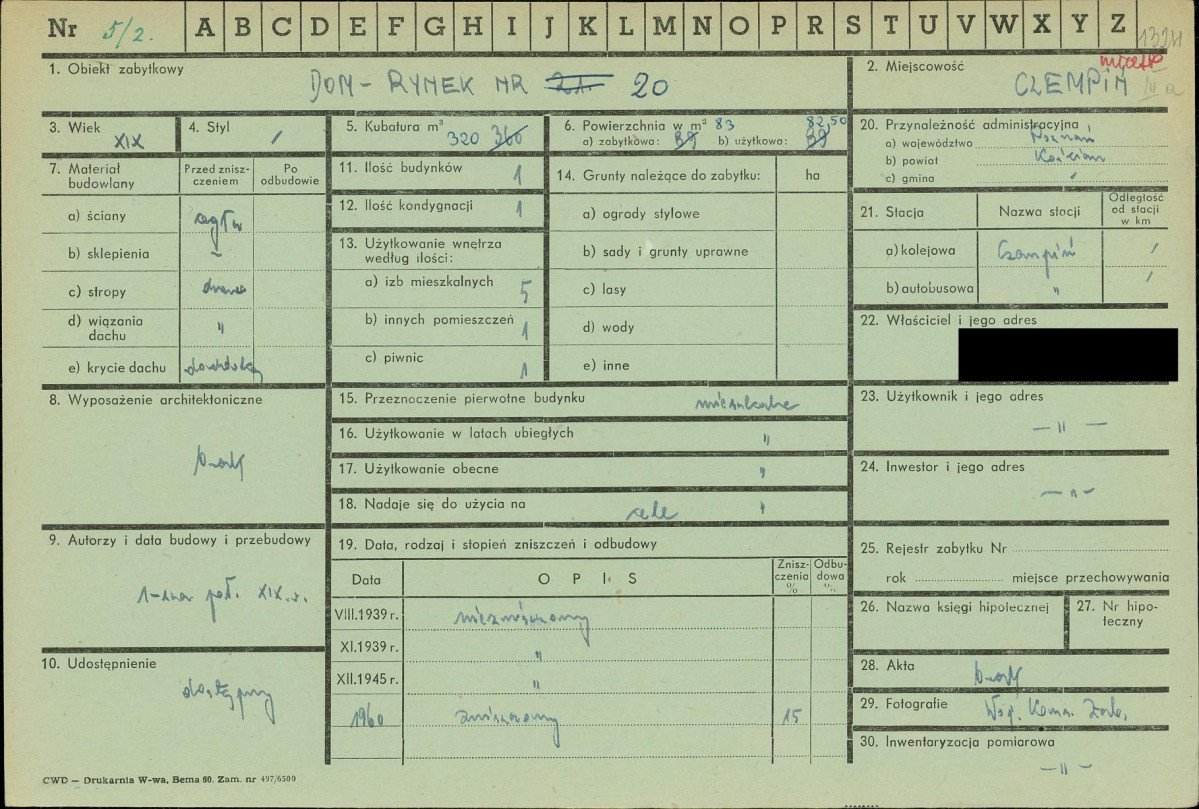 Nr 5/2. A B C D E F G H I J K L M N O P R S T U V W X Y Z
1. Obiekt zabytkowy
DOM - RYNEK NR 21 20
2. Miejscowość
miasto
CZEMPIŃ III a
3. Wiek
XIX
4. Styl
/
5. Kubatura m³
320 360
6. Powierzchnia w m² 83 82,50
a) zabytkowa: 89 b) użytkowa: 89
7. Materiał budowlany
Przed zniszczeniem
Po odbudowie
a) ściany cegła
b) sklepienia –
c) stropy drewn
d) wiązania dachu "
e) krycie dachu dachówka
8. Wyposażenie architektoniczne
brak
9. Autorzy i data budowy i przebudowy
1-sza poł. XIX w.
10. Udostępnienie
dostępny
11. Ilość budynków 1
12. Ilość kondygnacji 1
13. Użytkowanie wnętrza
według ilości:
a) izb mieszkalnych 5
b) innych pomieszczeń 1
c) piwnic 1
14. Grunty należące do zabytku: ha
a) ogrody stylowe
b) sady i grunty uprawne
c) lasy
d) wody
e) inne
15. Przeznoczenie pierwotne budynku mieszkalne
16. Użytkowanie w latach ubiegłych "
17. Użytkowanie obecne "
18. Nadaje się do użycia na cele "
19. Data, rodzaj i stopień zniszczeń i odbudowy
Data OPIS Zniszczenia % Odbudowa %
VIII.1939 r. niezniszczony
XI.1939 r. "
XII.1945 r. "
1960 zniszczony 15
20. Przynależność administracyjna
a) województwo Poznań
b) powiat Kościan
c) gmina /
21. Stacja
Nazwa stacji
Odległość od stacji w km
a) kolejowa Czempiń /
b) autobusowa " /
22. Właściciel i jego adres
23. Użytkownik i jego adres
— " —
24. Inwestor i jego adres
— " —
25. Rejestr zabytku Nr
rok miejsce przechowywania
26. Nazwa księgi hipotecznej
27. Nr hipoteczny
28. Akta brak
29. Fotografie Woj. Kons. Zab.
30. Inwentaryzacja pomiarowa
— " —
CWD — Drukarnia W-wa, Bema 60. Zam. nr 497/6500